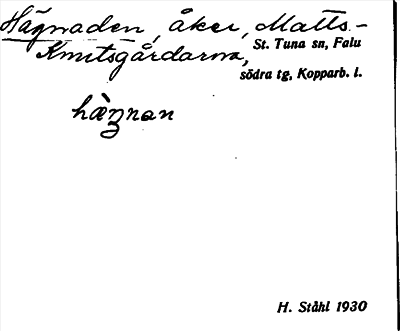 Hägnaden, åker, Matts-
Knutsgårdarna,
St. Tuna sn, Falu
södra tg, Kopparb. l.
hàʒnan
H. Ståhl 1930